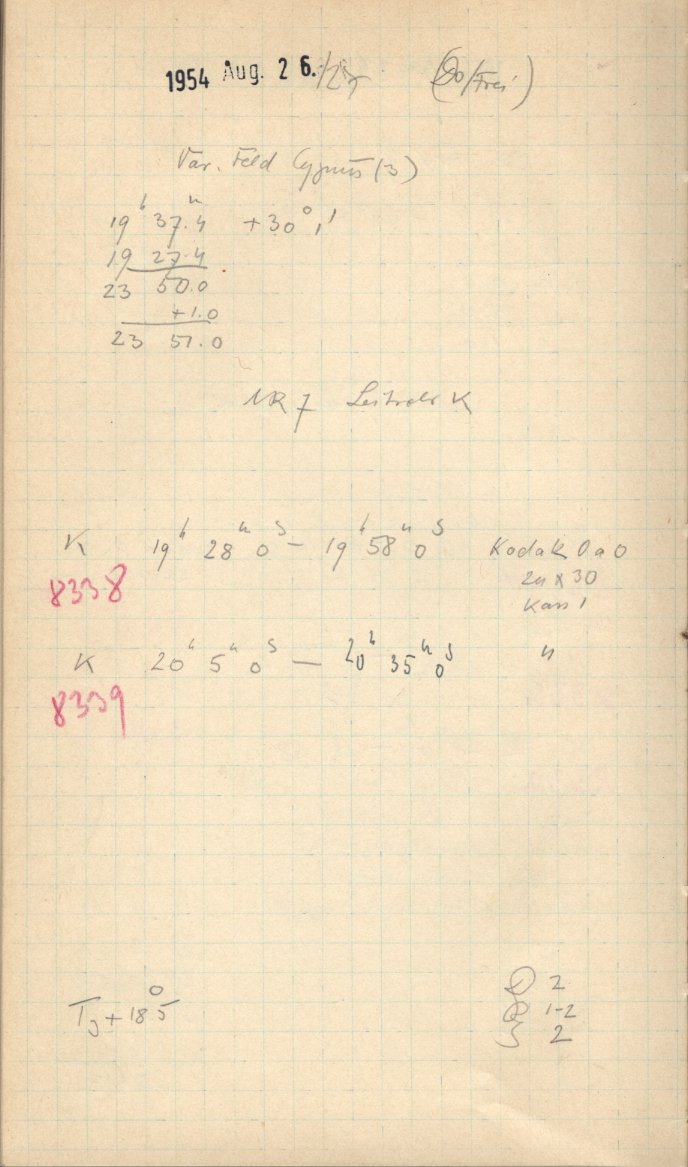 1954 Aug. 26./27 (Do/Frei)
Var. Feld Cygnus (3)
19ʰ 37.ᵐ4 +30° 1'
19 27.4
23 50.0
+1.0
23 51.0
NR 7 K
K 19ʰ 28ᵐ 0ˢ — 19ʰ 58ᵐ 0ˢ Kodak 0a0
8338 24 x 30
Kass 1
K 20ʰ 5ᵐ 0ˢ — 20ʰ 35ᵐ 0ˢ "
8339
+18°5 2
1-2
S 2